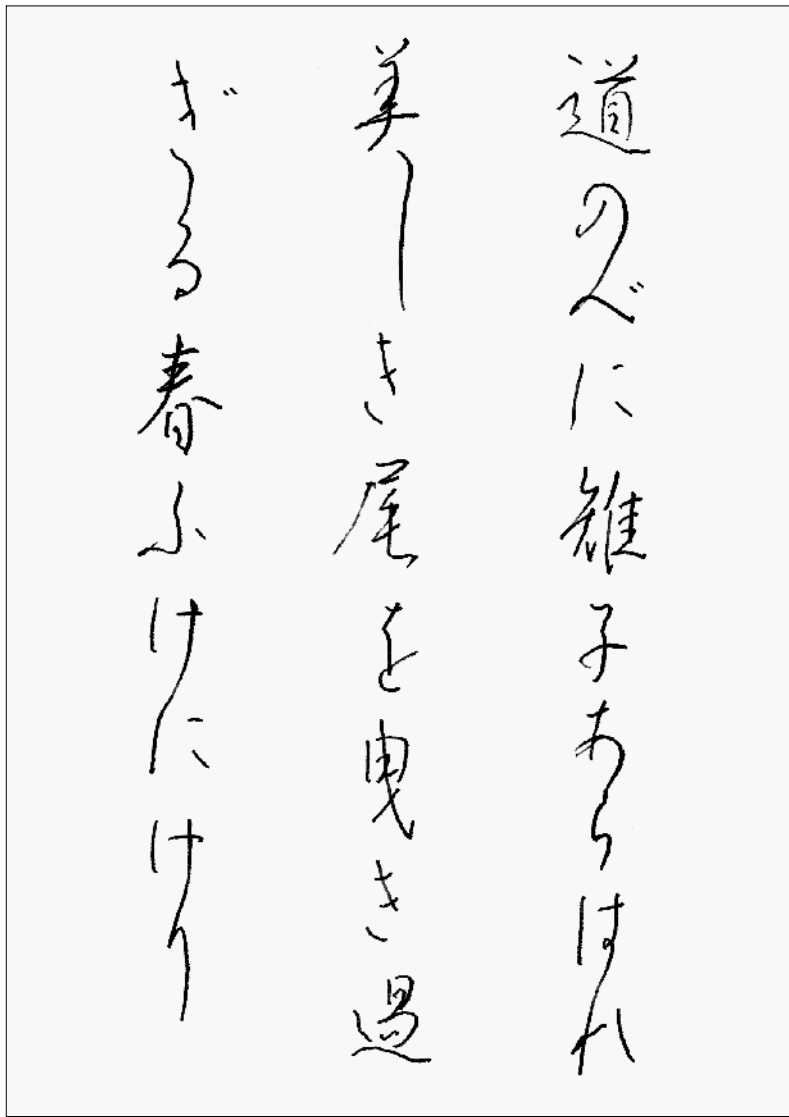 道のべに雉子あらはれ
美しき尾を曳き過
ぎゝる春ふけにけり